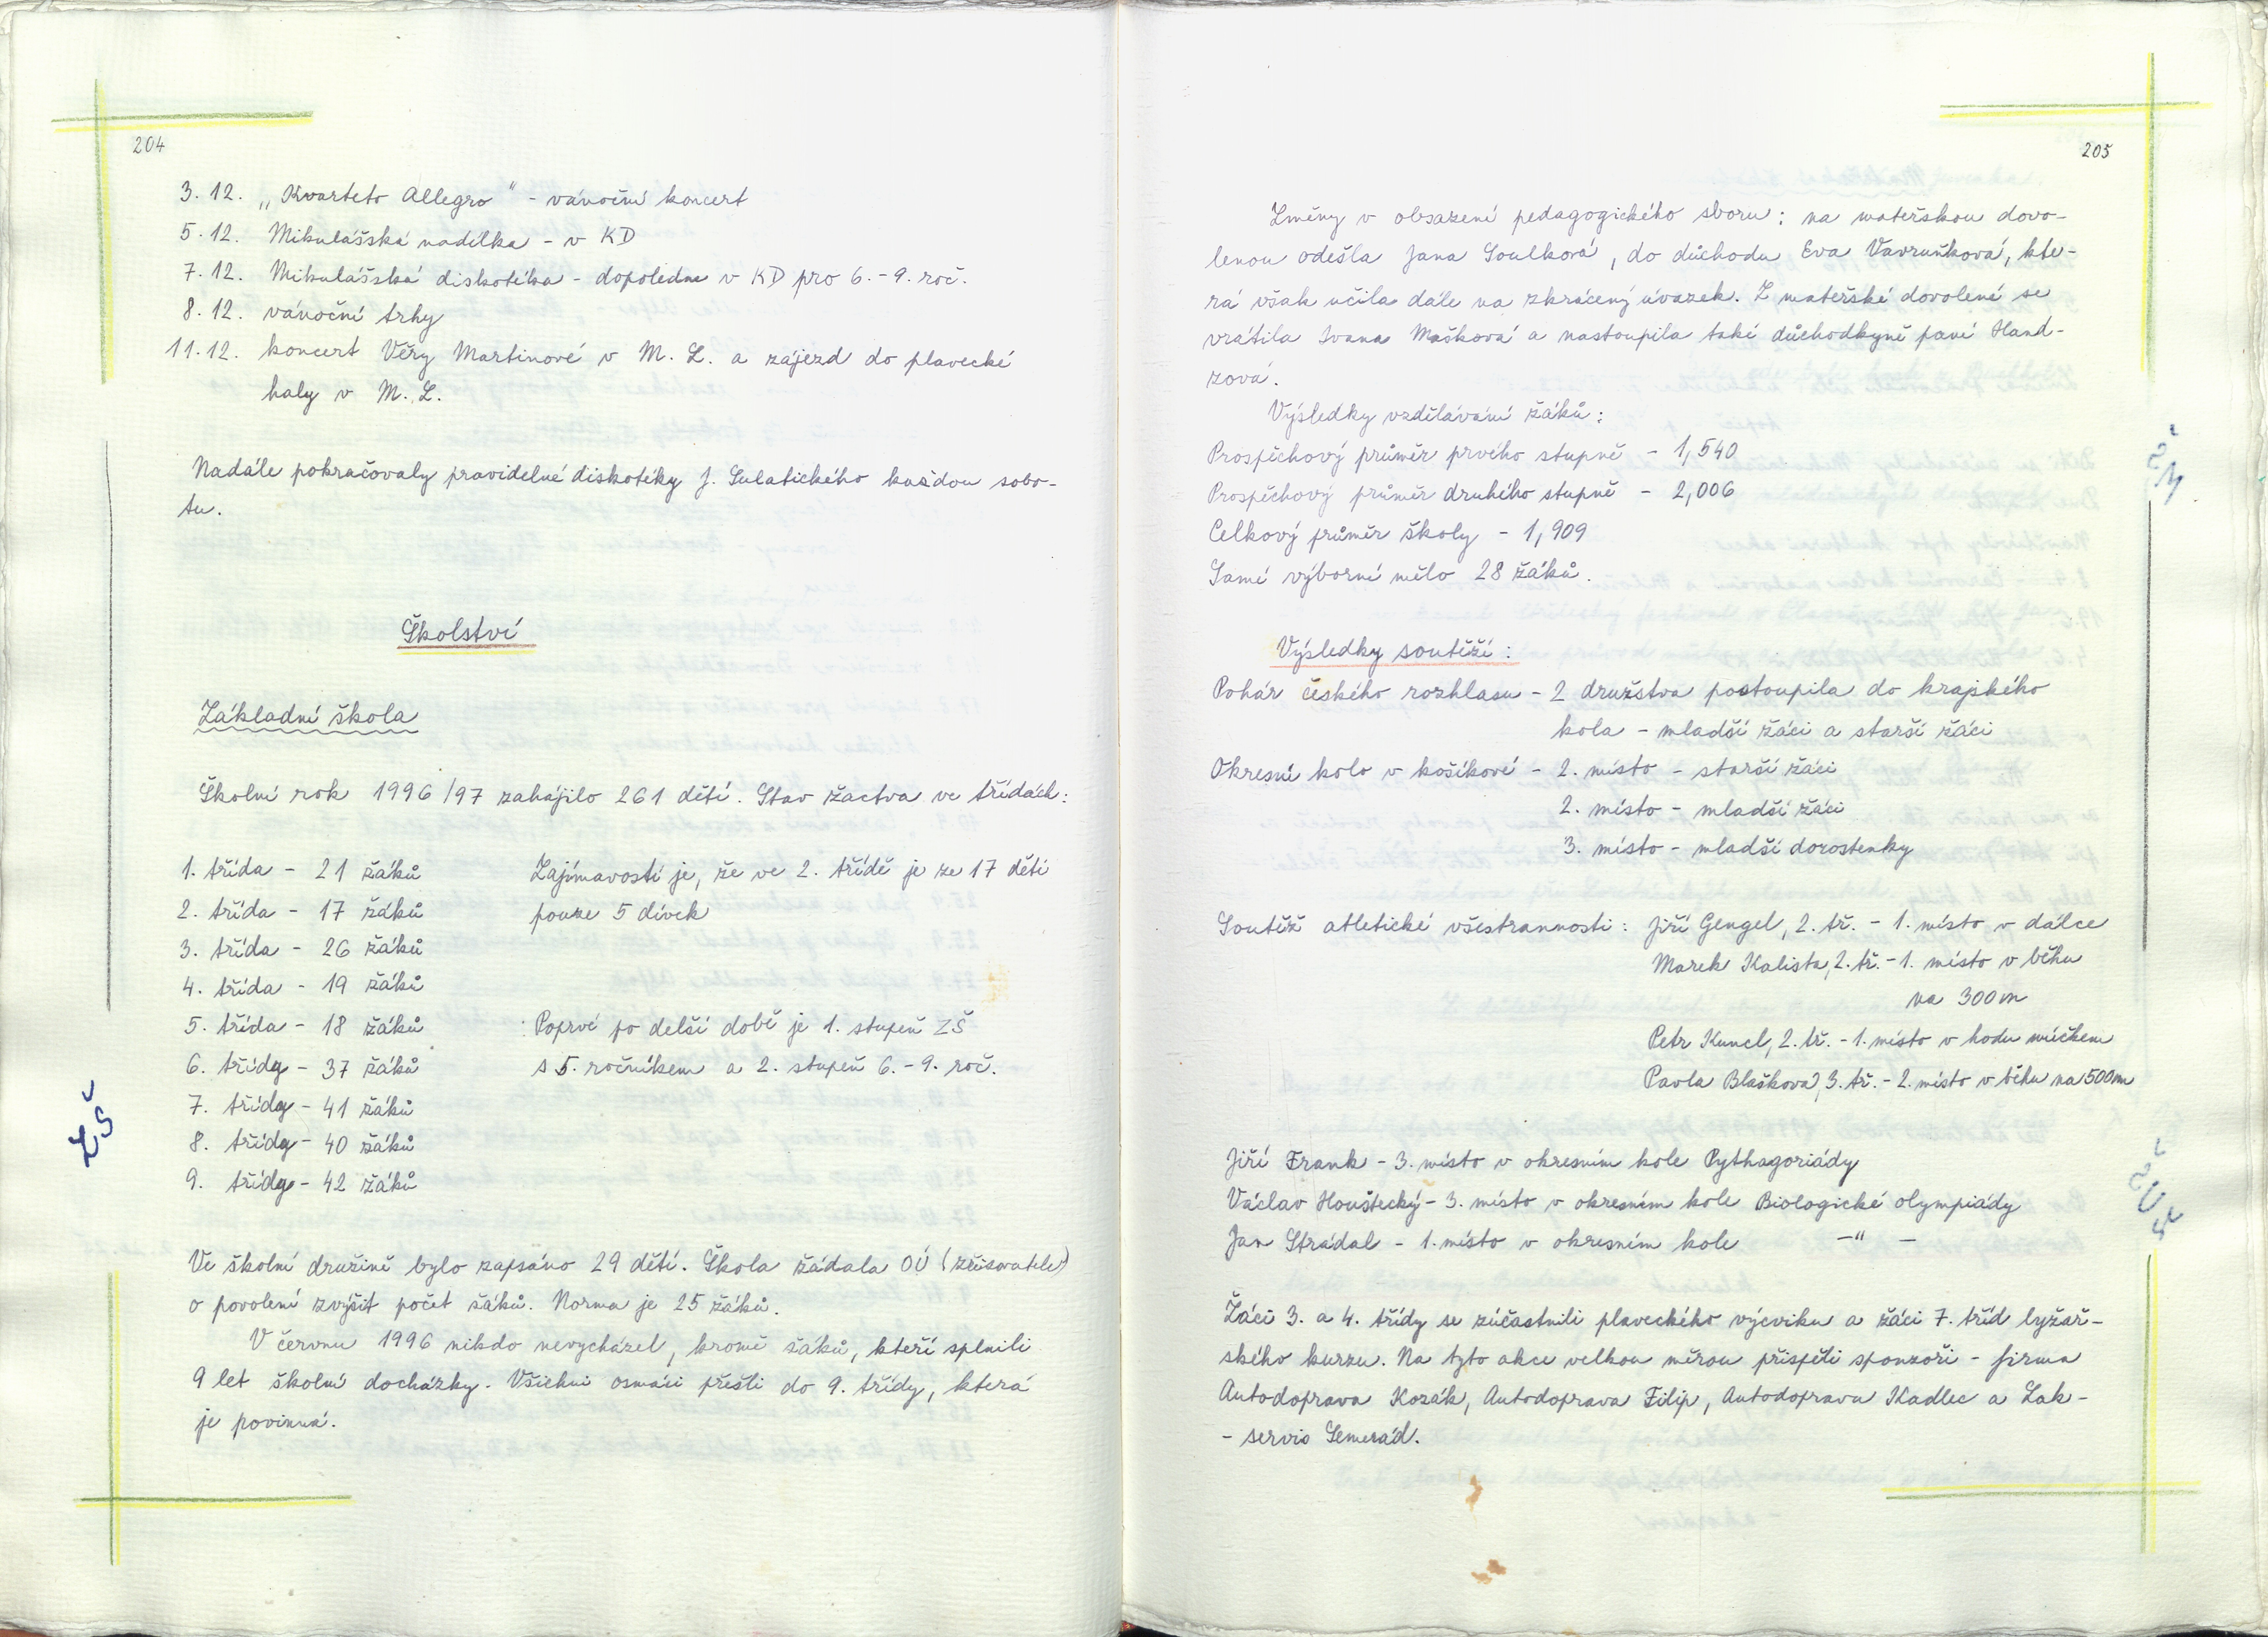 204
3. 12. „Kvarteto Allegro" - vánoční koncert
5. 12. Mikulášská nadílka - v KD
7. 12. Mikulášská diskotéka - dopoledne v KD pro 6. - 9. roč.
8. 12. vánoční trhy
11. 12. koncert Věry Martinové v M. L. a zájezd do plavecké
haly v M. L.
Nadále pokračovaly pravidelné diskotéky J. Sulatického každou sobo-
tu.
Školství
Základní škola
Školní rok 1996/97 zahájilo 261 dětí. Stav žactva ve třídách:
1. třída - 21 žáků
2. třída - 17 žáků
3. třída - 26 žáků
4. třída - 19 žáků
5. třída - 18 žáků
6. třídy - 37 žáků
7. třídy - 41 žáků
8. třídy - 40 žáků
9. třídy - 42 žáků
Zajímavostí je, že ve 2. třídě je ze 17 dětí
pouze 5 dívek
Poprvé po delší době je 1. stupeň ZŠ
s 5. ročníkem a 2. stupeň 6. - 9. roč.
ZŠ
Ve školní družině bylo zapsáno 29 dětí. Škola žádala OÚ (zřizovatele)
o povolení zvýšit počet žáků. Norma je 25 žáků.
V červnu 1996 nikdo nevycházel, kromě žáků, kteří splnili
9 let školní docházky. Všichni osmáci přešli do 9. třídy, která
je povinná.
205
Změny v obsazení pedagogického sboru: na mateřskou dovo-
lenou odešla Jana Soulková, do důchodu Eva Vavruňková, kte-
rá však učila dále na zkrácený úvazek. Z mateřské dovolené se
vrátila Ivana Mašková a nastoupila také důchodkyně paní Hand-
zová.
Výsledky vzdělávání žáků:
Prospěchový průměr prvého stupně - 1,540
Prospěchový průměr druhého stupně - 2,006
Celkový průměr školy - 1,909
Samé výborné mělo 28 žáků.
Výsledky soutěží:
Pohár českého rozhlasu - 2 družstva postoupila do krajského
kola - mladší žáci a starší žáci
Okresní kolo v košíkové - 2. místo - starší žáci
2. místo - mladší žáci
3. místo - mladší dorostenky
Soutěž atletické všestrannosti: Jiří Gengel, 2. tř. - 1. místo v dálce
Marek Kalista, 2. tř. - 1. místo v běhu
na 300 m
Petr Kuncl, 2. tř. - 1. místo v hodu míčkem
Pavla Blašková, 3. tř. - 2. místo v běhu na 500 m
Jiří Frank - 3. místo v okresním kole Pythagoriády
Václav Houštecký - 3. místo v okresním kole Biologické olympiády
Jan Strádal - 1. místo v okresním kole -"-
Žáci 3. a 4. třídy se zúčastnili plaveckého výcviku a žáci 7. tříd lyžař-
ského kurzu. Na tyto akce velkou měrou přispěli sponzoři - firma
Autodoprava Kozák, Autodoprava Filip, Autodoprava Kadlec a Lak-
- servis Semerád.